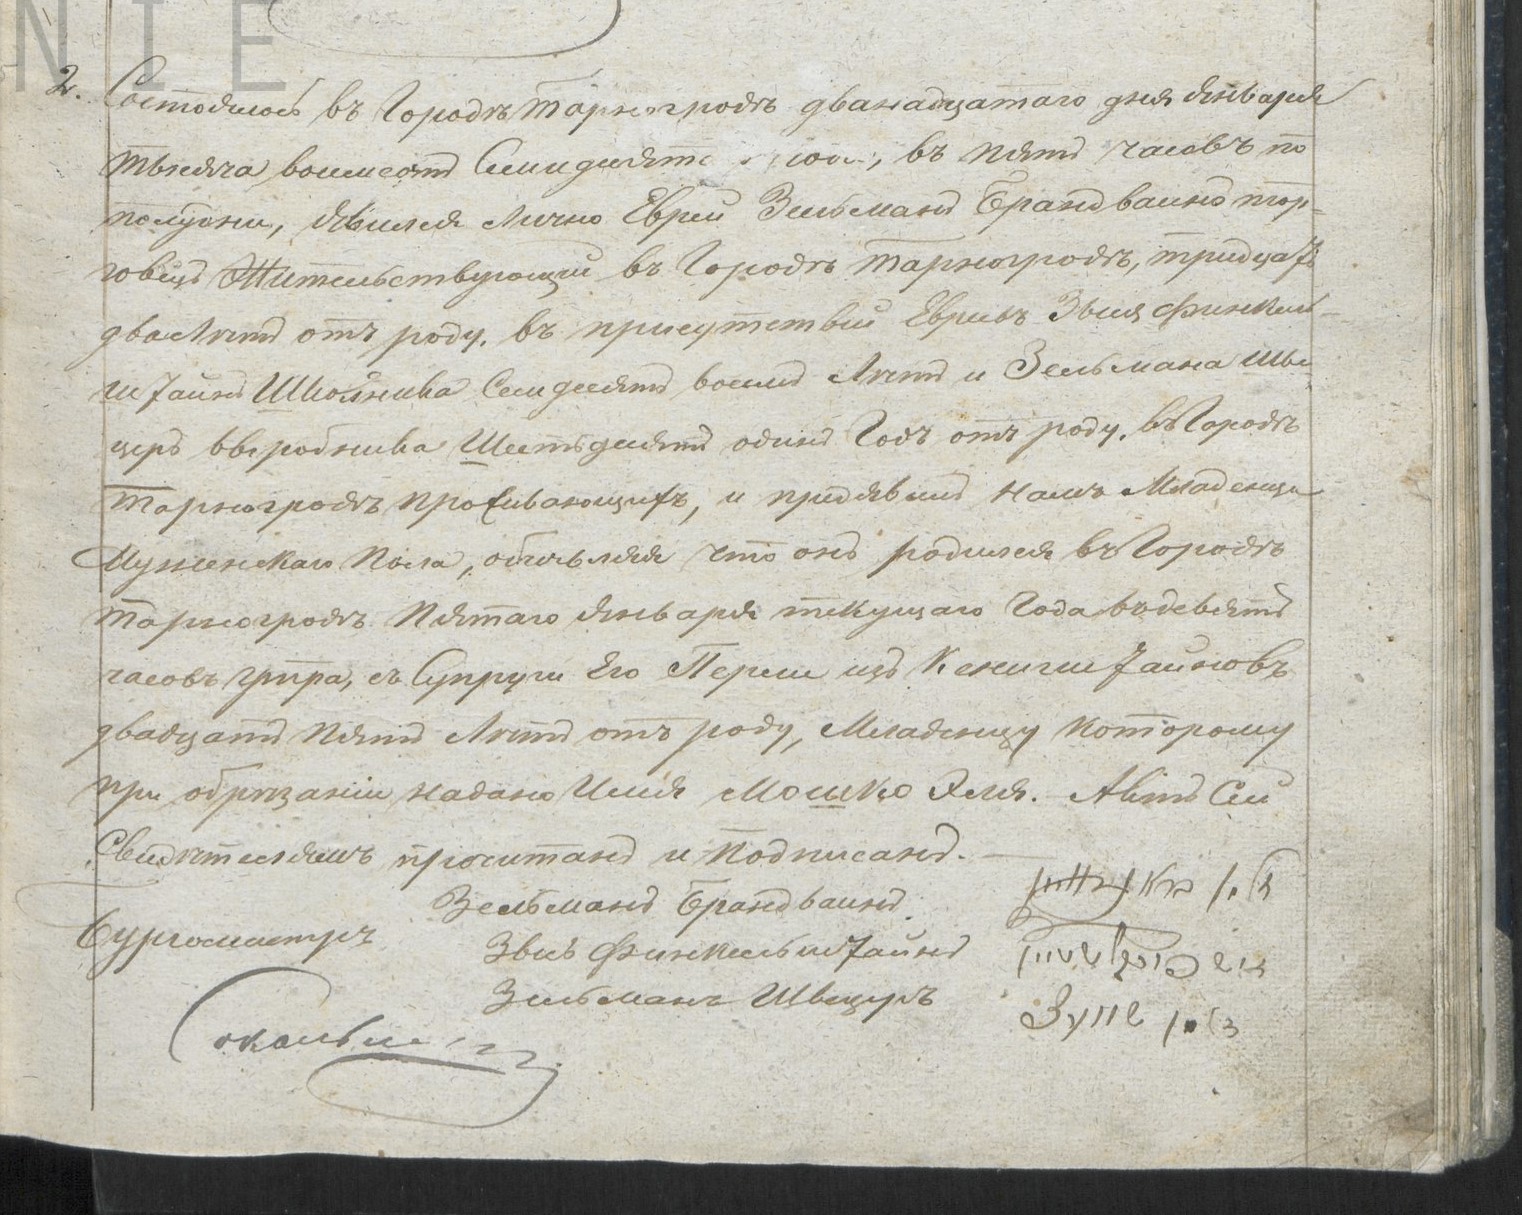 NIE
2. Состоялось въ Городѣ Тарногродѣ двѣнадцатаго дня Января
тысяча восемсотъ Семидесятаго въ пять часовъ по
полудни, Явился Лично Еврей Зельманъ Брандваинъ тор-
говецъ Жительствующій въ Городѣ Тарногродѣ, тридцать
два Лѣтъ отъ роду. въ присутствіи Евреевъ Звися Финкель-
штайнъ Школьника Семдесятъ восемь Лѣтъ и Зельмана Шве
церъ Шестьдесятъ одинъ Годъ отъ роду. въ Городѣ
Тарногродѣ проживающихъ, и предъявилъ намъ Младенца
Мужескаго Пола, объявляя что онъ родился въ Городѣ
Тарногродѣ Пятаго Января текущаго Года въ девять
часовъ утра, съ Супруги Его Перли изъ Кенигштайновъ
двадцать Пять Лѣтъ отъ роду, Младенцу Которому
при обрѣзаніи надано Имя Мошко Эля. Актъ Сей
Свидѣтелямъ прочитанъ и Подписанъ.
Зельманъ Брандваинъ
Бургомистръ
Звись Финкельштайнъ
Зельманъ Швецеръ